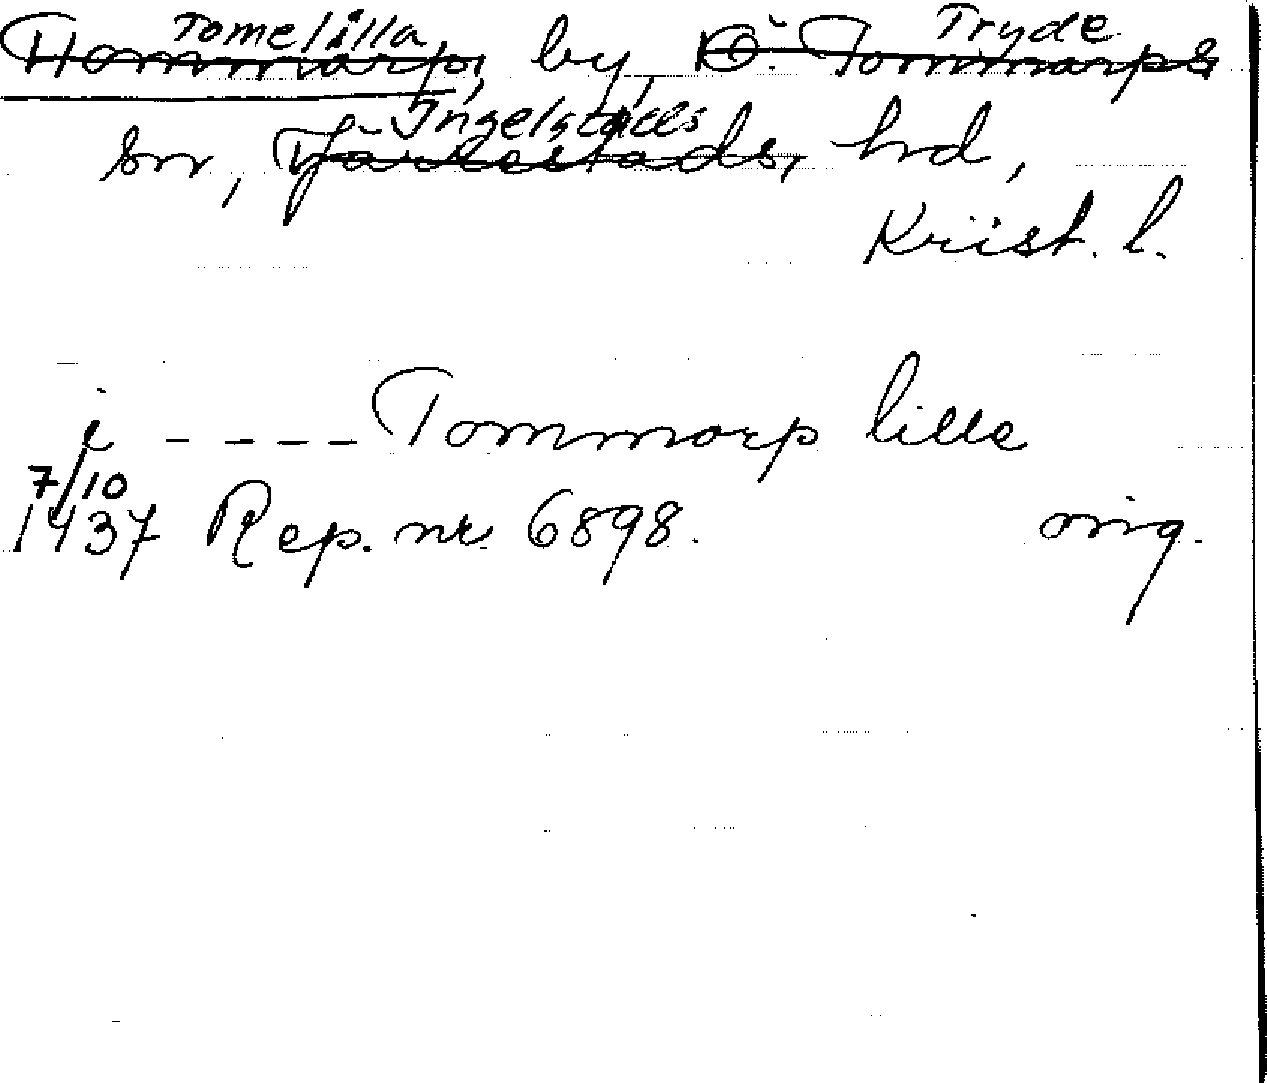 Tomelilla Tryde
Tommarp, by, Ö. Tommarps
Ingelstads
sn, Järrestads, hd,
Krist. l.
i ---- Tommarp lille
7/10
1437 Rep. nr 6898. orig.